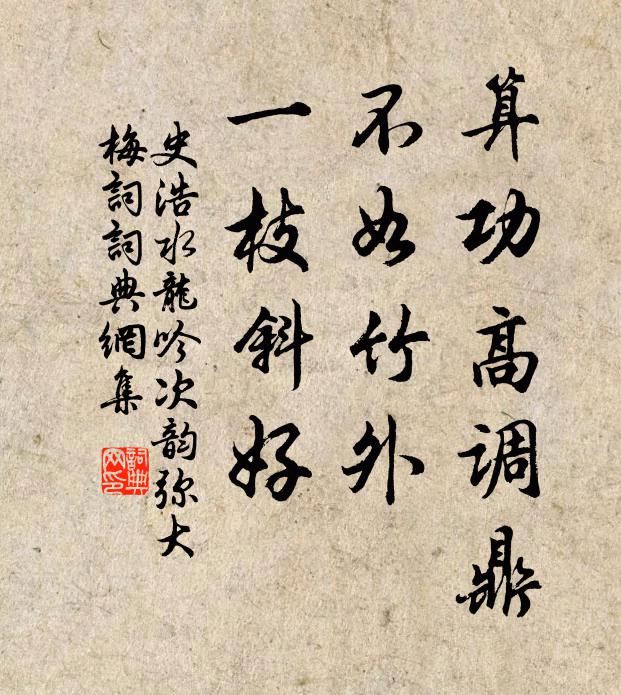 算功高调鼎
不如竹外
一枝斜好
史浩水龍吟次韵弥大
梅詞詞典網集
詞典
网印